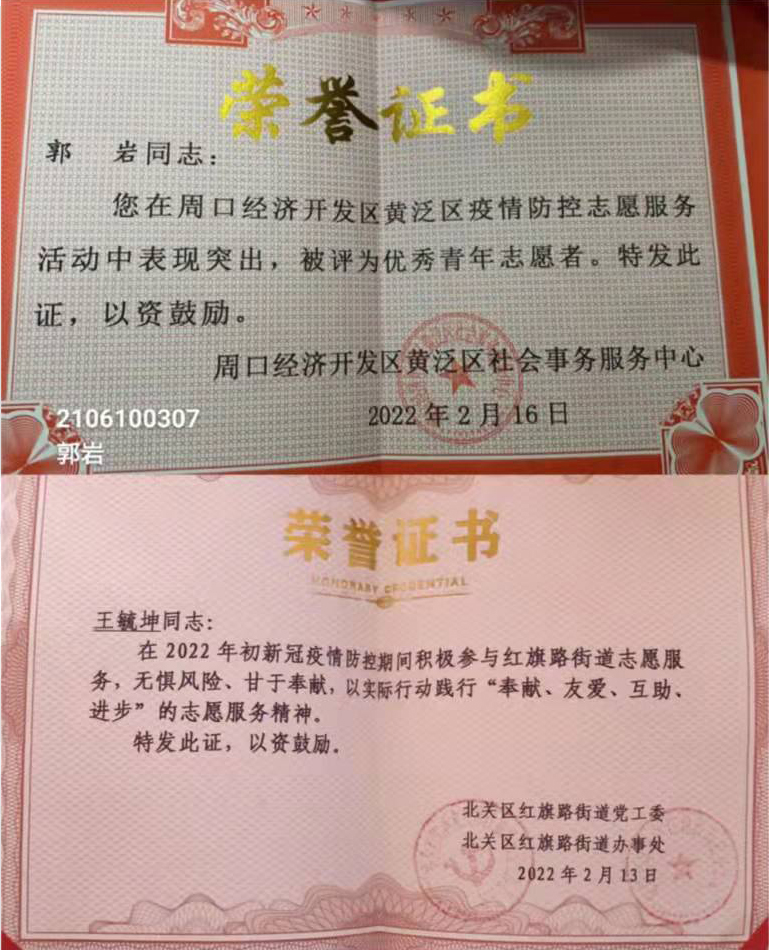 荣誉证书
郭 岩同志：
您在周口经济开发区黄泛区疫情防控志愿服务
活动中表现突出，被评为优秀青年志愿者。特发此
证，以资鼓励。
周口经济开发区黄泛区社会事务服务中心
2022年2月16日
2106100307
郭岩
荣誉证书
HONORARY CREDENTIAL
王毓坤同志：
在2022年初新冠疫情防控期间积极参与红旗路街道志愿服
务，无惧风险、甘于奉献，以实际行动践行“奉献、友爱、互助、
进步”的志愿服务精神。
特发此证，以资鼓励。
北关区红旗路街道党工委
北关区红旗路街道办事处
2022年2月13日